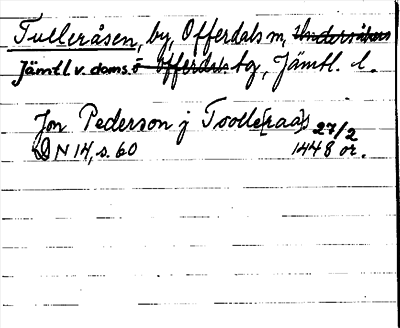 Tulleråsen, by, Offerdals sn, Undersåkers
Jämtl v. doms. o Offerdals tg, Jämtl. l.
Jon Pederson j Tvolle[raas] 27/2
DN 14, s. 60 1448 or.